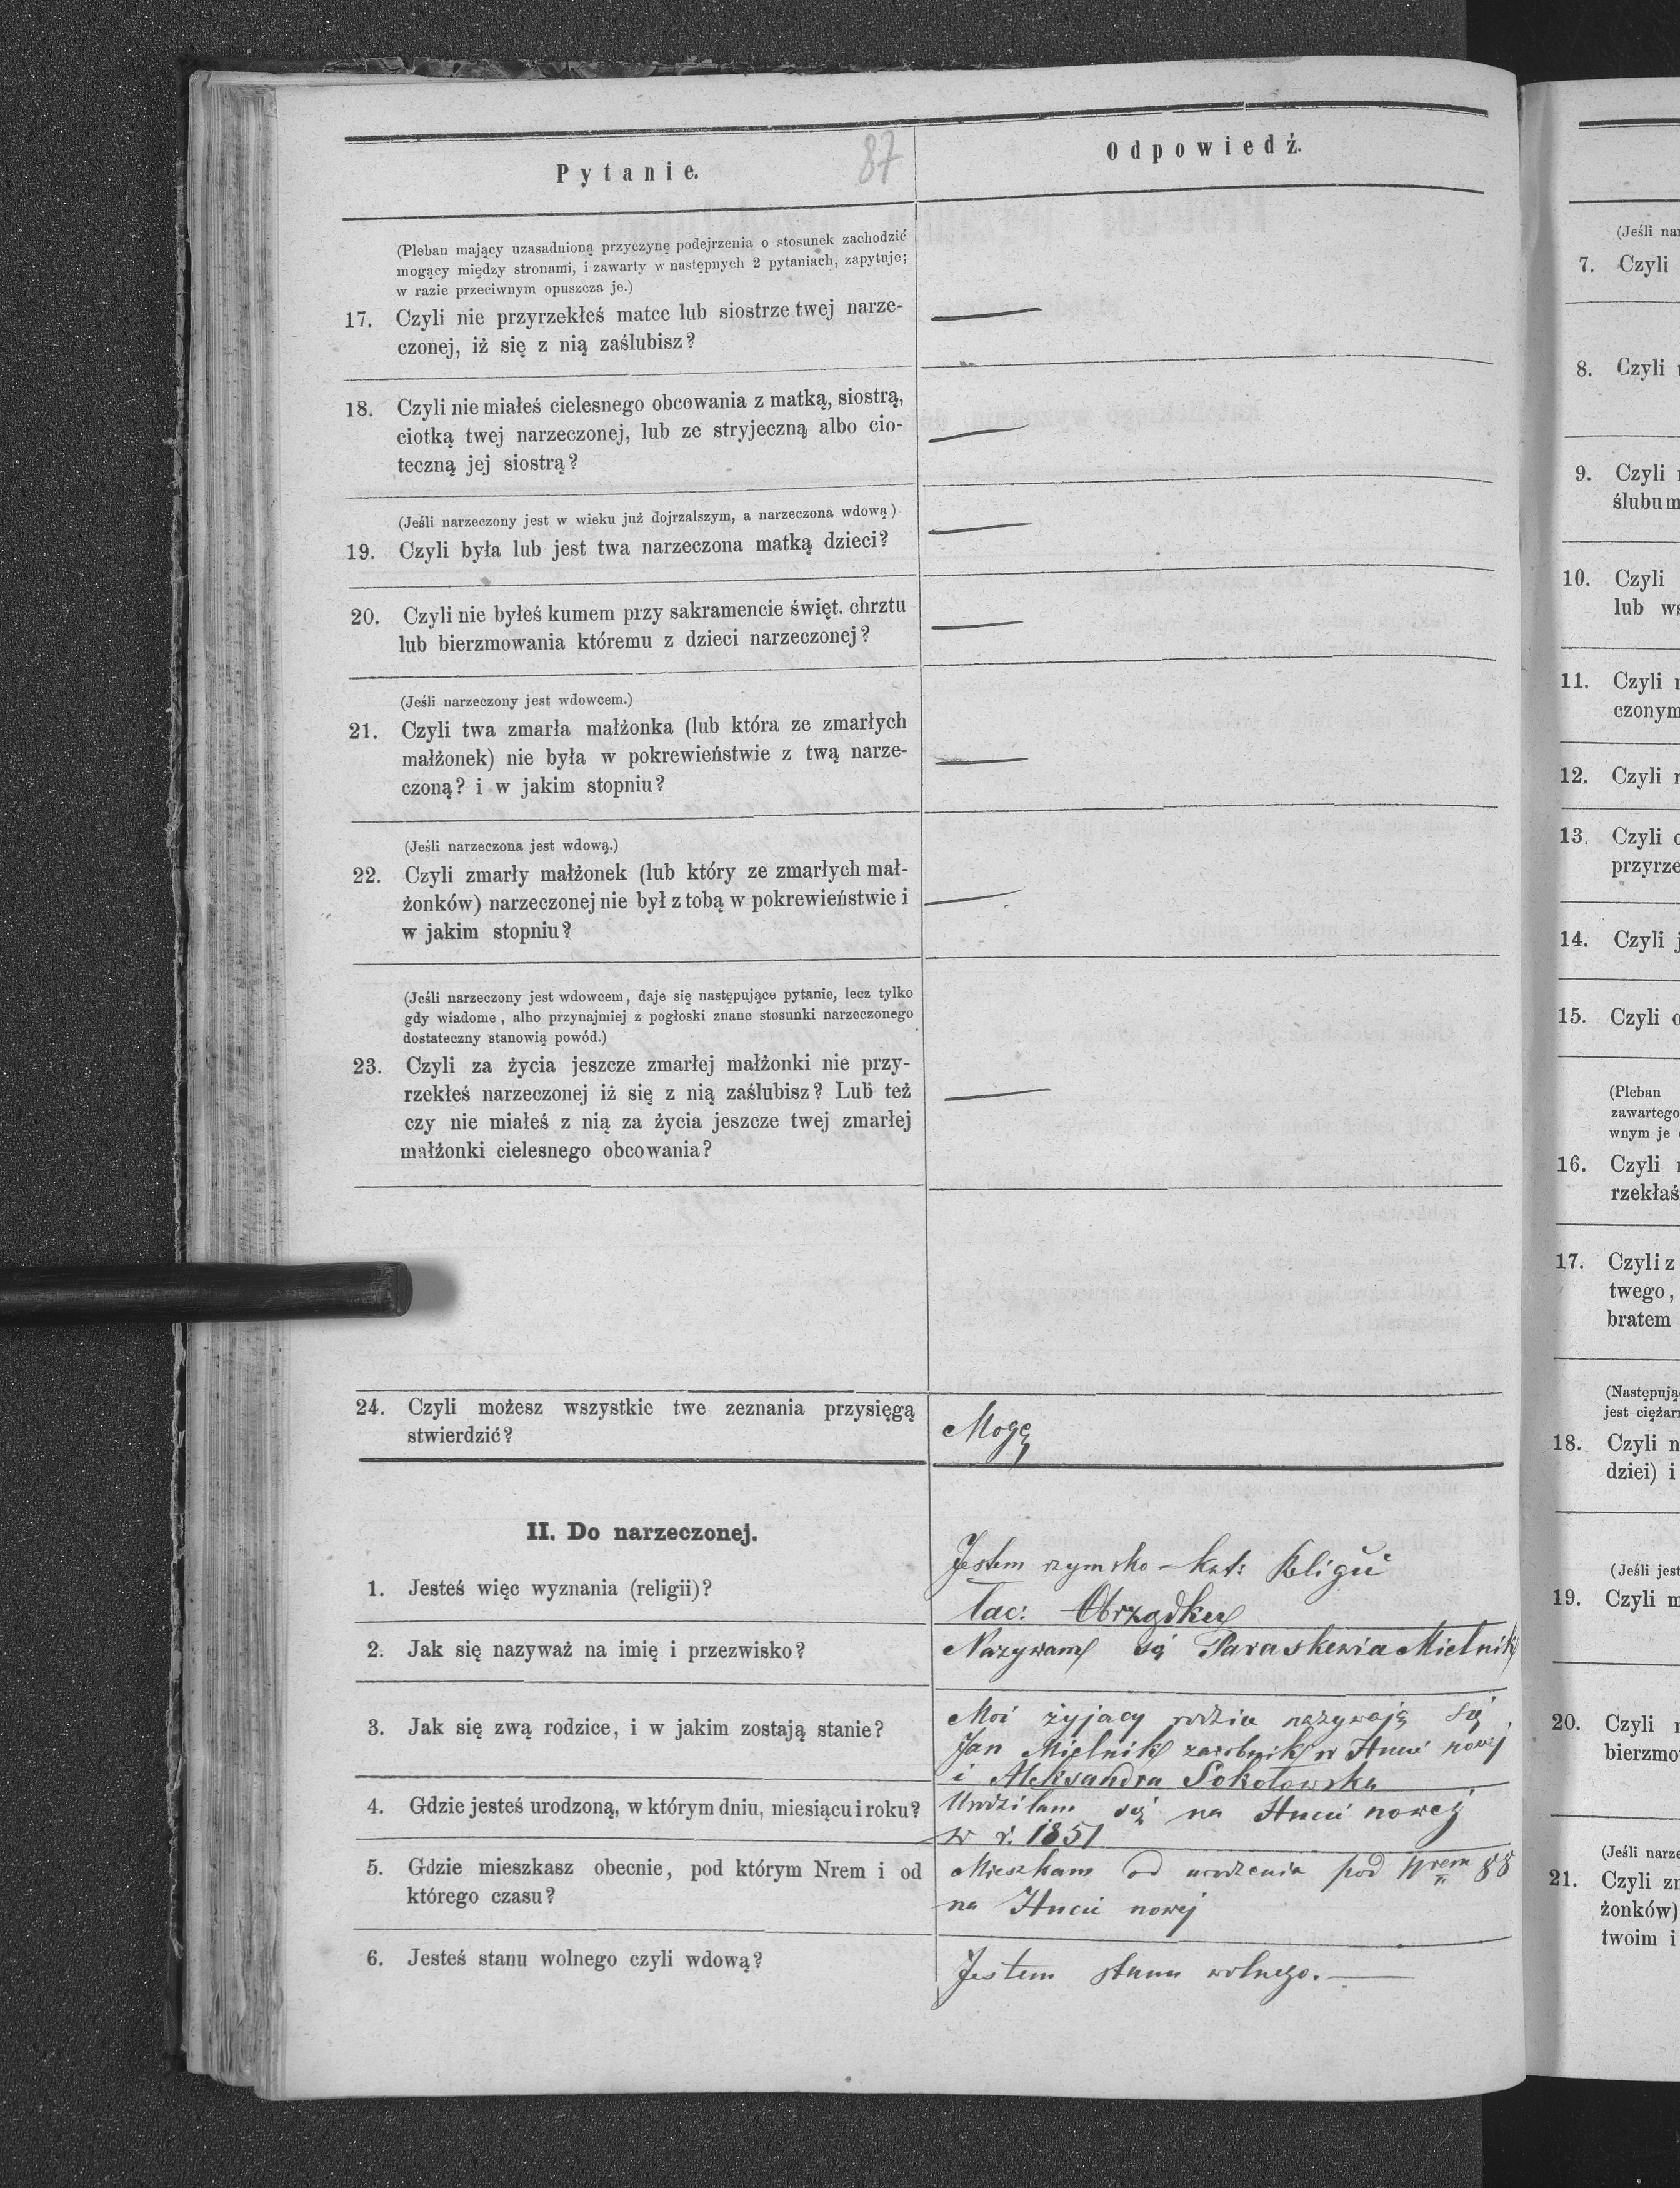 87
Pytanie.
Odpowiedź.
(Pleban mający uzasadnioną przyczynę podejrzenia o stosunek zachodzić
mogący między stronami, i zawarty w następnych 2 pytaniach, zapytuje;
w razie przeciwnym opuszcza je.)
17. Czyli nie przyrzekłeś matce lub siostrze twej narze-
czonej, iż się z nią zaślubisz?
18. Czyli nie miałeś cielesnego obcowania z matką, siostrą,
ciotką twej narzeczonej, lub ze stryjeczną albo cio-
teczną jej siostrą?
(Jeśli narzeczony jest w wieku już dojrzalszym, a narzeczona wdową)
19. Czyli była lub jest twa narzeczona matką dzieci?
20. Czyli nie byłeś kumem przy sakramencie święt. chrztu
lub bierzmowania któremu z dzieci narzeczonej?
(Jeśli narzeczony jest wdowcem.)
21. Czyli twa zmarła małżonka (lub która ze zmarłych
małżonek) nie była w pokrewieństwie z twą narze-
czoną? i w jakim stopniu?
(Jeśli narzeczona jest wdową.)
22. Czyli zmarły małżonek (lub który ze zmarłych mał-
żonków) narzeczonej nie był z tobą w pokrewieństwie i
w jakim stopniu?
(Jeśli narzeczony jest wdowcem, daje się następujące pytanie, lecz tylko
gdy wiadome, albo przynajmiej z pogłoski znane stosunki narzeczonego
dostateczny stanowią powód.)
23. Czyli za życia jeszcze zmarłej małżonki nie przy-
rzekłeś narzeczonej iż się z nią zaślubisz? Lub też
czy nie miałeś z nią za życia jeszcze twej zmarłej
małżonki cielesnego obcowania?
24. Czyli możesz wszystkie twe zeznania przysięgą
stwierdzić?
Mogę
II. Do narzeczonej.
1. Jesteś więc wyznania (religii)?
Jestem rzymsko-kat: Religii
łac: Obrządku
2. Jak się nazyważ na imię i przezwisko?
Nazywam się Paraskewia Mielnik
3. Jak się zwą rodzice, i w jakim zostają stanie?
Moi żyjacy rodzice nazywają się
Jan Mielnik zarobnik w Hucie nowej
i Aleksandra Sokołowska
4. Gdzie jesteś urodzoną, w którym dniu, miesiącu i roku?
Urodziłam się na Hucie nowej
w r. 1851
5. Gdzie mieszkasz obecnie, pod którym Nrem i od
którego czasu?
Mieszkam od urodzenia pod Nrem 88
na Hucie nowej
6. Jesteś stanu wolnego czyli wdową?
Jestem stanu wolnego.
(Jeśli nar
7. Czyli
8. Czyli
9. Czyli
ślubu m
10. Czyli
lub ws
11. Czyli
czonym
12. Czyli
13. Czyli
przyrze
14. Czyli j
15. Czyli
(Pleban
zawartego
wnym je
16. Czyli
rzekłaś
17. Czyli z
twego,
bratem
(Następują
jest ciężar
18. Czyli n
dziei) i
(Jeśli jest
19. Czyli m
20. Czyli
bierzmo
(Jeśli narze
21. Czyli zm
żonków)
twoim i